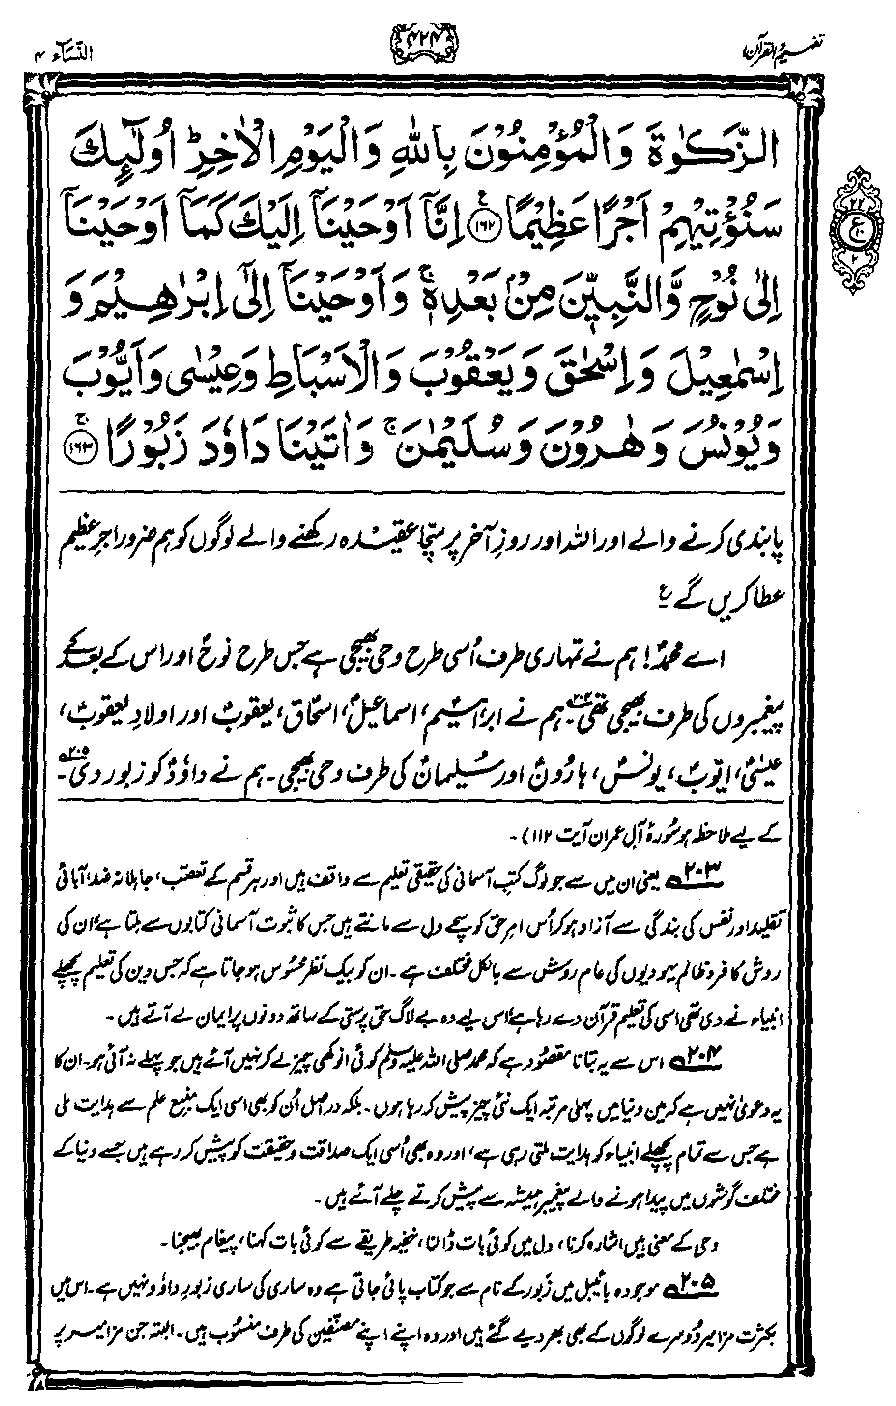 تفہیم القرآن ۴۲۴ النسآء ۴
الزَّكٰوةَ وَالْمُؤْمِنُوْنَ بِاللّٰهِ وَالْيَوْمِ الْاٰخِرِ ؕ اُولٰٓئِكَ
سَنُؤْتِيْهِمْ اَجْرًا عَظِيْمًا ۱۶۲ اِنَّاۤ اَوْحَيْنَاۤ اِلَيْكَ كَمَاۤ اَوْحَيْنَاۤ
اِلٰى نُوْحٍ وَّالنَّبِيّٖنَ مِنْۢ بَعْدِهٖ ۚ وَاَوْحَيْنَاۤ اِلٰۤى اِبْرٰهِيْمَ وَ
اِسْمٰعِيْلَ وَاِسْحٰقَ وَيَعْقُوْبَ وَالْاَسْبَاطِ وَعِيْسٰى وَاَيُّوْبَ
وَيُوْنُسَ وَهٰرُوْنَ وَسُلَيْمٰنَ ۚ وَاٰتَيْنَا دَاوٗدَ زَبُوْرًا ۱۶۳
پابندی کرنے والے اور اللہ اور روزِ آخر پر سچا عقیدہ رکھنے والے لوگوں کو ہم ضرور اجرِ عظیم
عطا کریں گے ع
اے محمدؐ! ہم نے تمہاری طرف اُسی طرح وحی بھیجی ہے جس طرح نوحؑ اور اس کے بعد کے
پیغمبروں کی طرف بھیجی تھی۲۰۴۔ ہم نے ابراہیمؑ، اسماعیلؑ، اسحاقؑ، یعقوبؑ اور اولادِ یعقوبؑ،
عیسیٰؑ، ایوبؑ، یونسؑ، ہارونؑ اور سلیمانؑ کی طرف وحی بھیجی۔ ہم نے داؤدؑ کو زبور دی۲۰۵۔
کے لیے ملاحظہ ہو سُورۂ آل عمران آیت ۱۱۲)۔
۲۰۳ یعنی ان میں سے جو لوگ کتبِ آسمانی کی حقیقی تعلیم سے واقف ہیں اور ہر قسم کے تعصب، جاہلانہ ضد، آبائی
تقلید اور نفس کی بندگی سے آزاد ہو کر اُس امرِ حق کو سچے دل سے مانتے ہیں جس کا ثبوت آسمانی کتابوں سے ملتا ہے، ان کی
روش کافر و ظالم یہودیوں کی عام روش سے بالکل مختلف ہے۔ ان کو بیک نظر محسوس ہو جاتا ہے کہ جس دین کی تعلیم پچھلے
انبیاء نے دی تھی اسی کی تعلیم قرآن دے رہا ہے، اس لیے وہ بے لاگ حق پرستی کے ساتھ دونوں پر ایمان لے آتے ہیں۔
۲۰۴ اس سے یہ بتانا مقصُود ہے کہ محمد صلی اللہ علیہ وسلم کوئی انوکھی چیز لے کر نہیں آئے ہیں جو پہلے نہ آئی ہو۔ ان کا
یہ دعویٰ نہیں ہے کہ میں دنیا میں پہلی مرتبہ ایک نئی چیز پیش کر رہا ہوں۔ بلکہ دراصل اُن کو بھی اسی ایک منبعِ علم سے ہدایت ملی
ہے جس سے تمام پچھلے انبیاء کو ہدایت ملتی رہی ہے، اور وہ بھی اُسی ایک صداقت و حقیقت کو پیش کر رہے ہیں جسے دنیا کے
مختلف گوشوں میں پیدا ہونے والے پیغمبر ہمیشہ سے پیش کرتے چلے آئے ہیں۔
وحی کے معنی ہیں اشارہ کرنا، دل میں کوئی بات ڈالنا، خفیہ طریقے سے کوئی بات کہنا، پیغام بھیجنا۔
۲۰۵ موجودہ بائیبل میں زَبور کے نام سے جو کتاب پائی جاتی ہے وہ ساری کی ساری زبورِ داؤد نہیں ہے۔ اس میں
بکثرت مزامیر دُوسرے لوگوں کے بھی بھر دیے گئے ہیں اور وہ اپنے اپنے مصنّفین کی طرف منسُوب ہیں۔ البتہ جن مزامیر پر